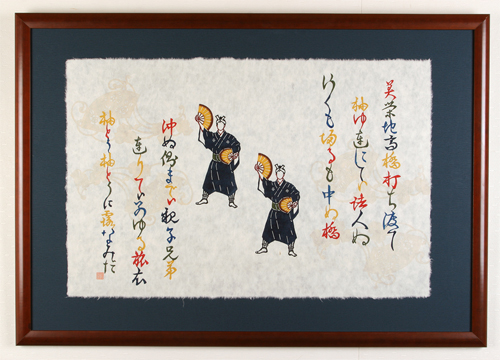 美栄地高橋打ち渡て
袖ゆ連にてぃ諸人ぬ
行くも帰るも中ぬ橋
沖ぬ側までぃ親子兄弟
連りてぃ別ゆる旅衣
袖とぅ袖とぅに露なみだ